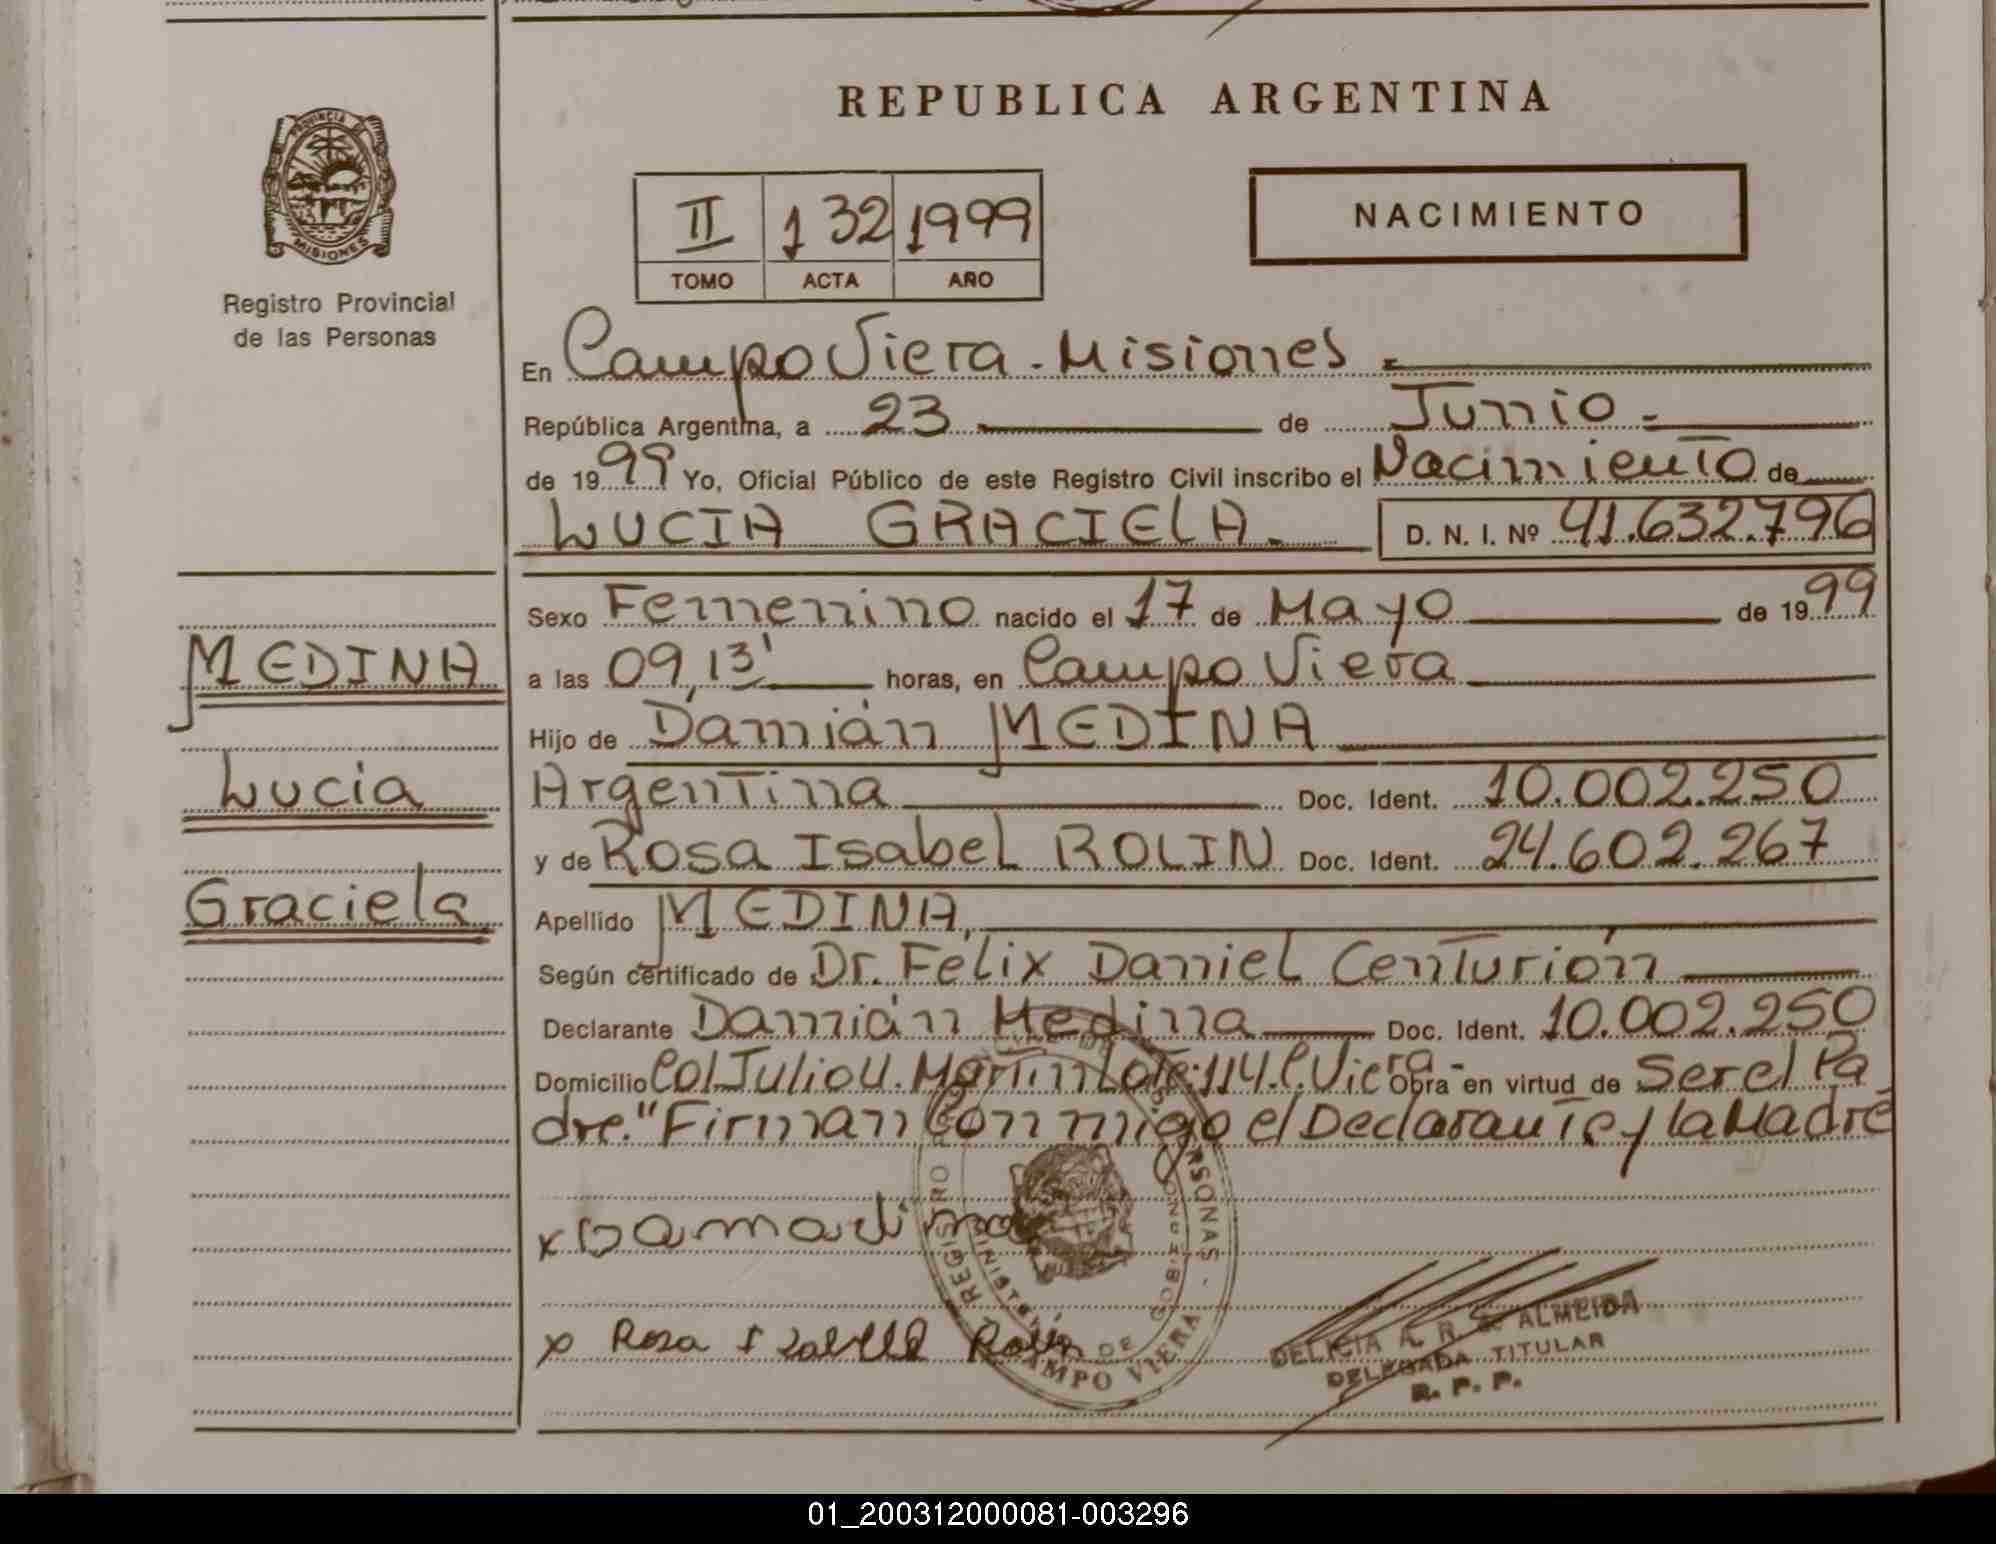 REPUBLICA ARGENTINA
PROVINCIA DE
MISIONES
Registro Provincial
de las Personas
II 132 1999
TOMO ACTA AÑO
NACIMIENTO
En Campo Viera - Misiones
República Argentina, a 23 de Junio
de 1999 Yo, Oficial Público de este Registro Civil inscribo el Nacimiento de
LUCIA GRACIELA. D. N. I. Nº 41.632.796
Sexo Femenino nacido el 17 de Mayo de 1999
MEDINA
a las 09,13' horas, en Campo Viera
Hijo de Damián MEDINA
Lucia
Argentina Doc. Ident. 10.002.250
y de Rosa Isabel ROLIN Doc. Ident. 24.602.267
Graciela
Apellido MEDINA
Según certificado de Dr. Félix Daniel Centurión
Declarante Damián Medina Doc. Ident. 10.002.250
Domicilio Col Julio U. Martin Lote:114.C.Viera- Obra en virtud de Ser el Pa
dre." Firman Con migo el Declarante y la Madre
x
x Rosa Rolin
REGISTRO PERSONAS - CAMPO VIERA
DE
DELICIA A. R. ALMEIDA
DELEGADA TITULAR
R. P. P.
01_200312000081-003296